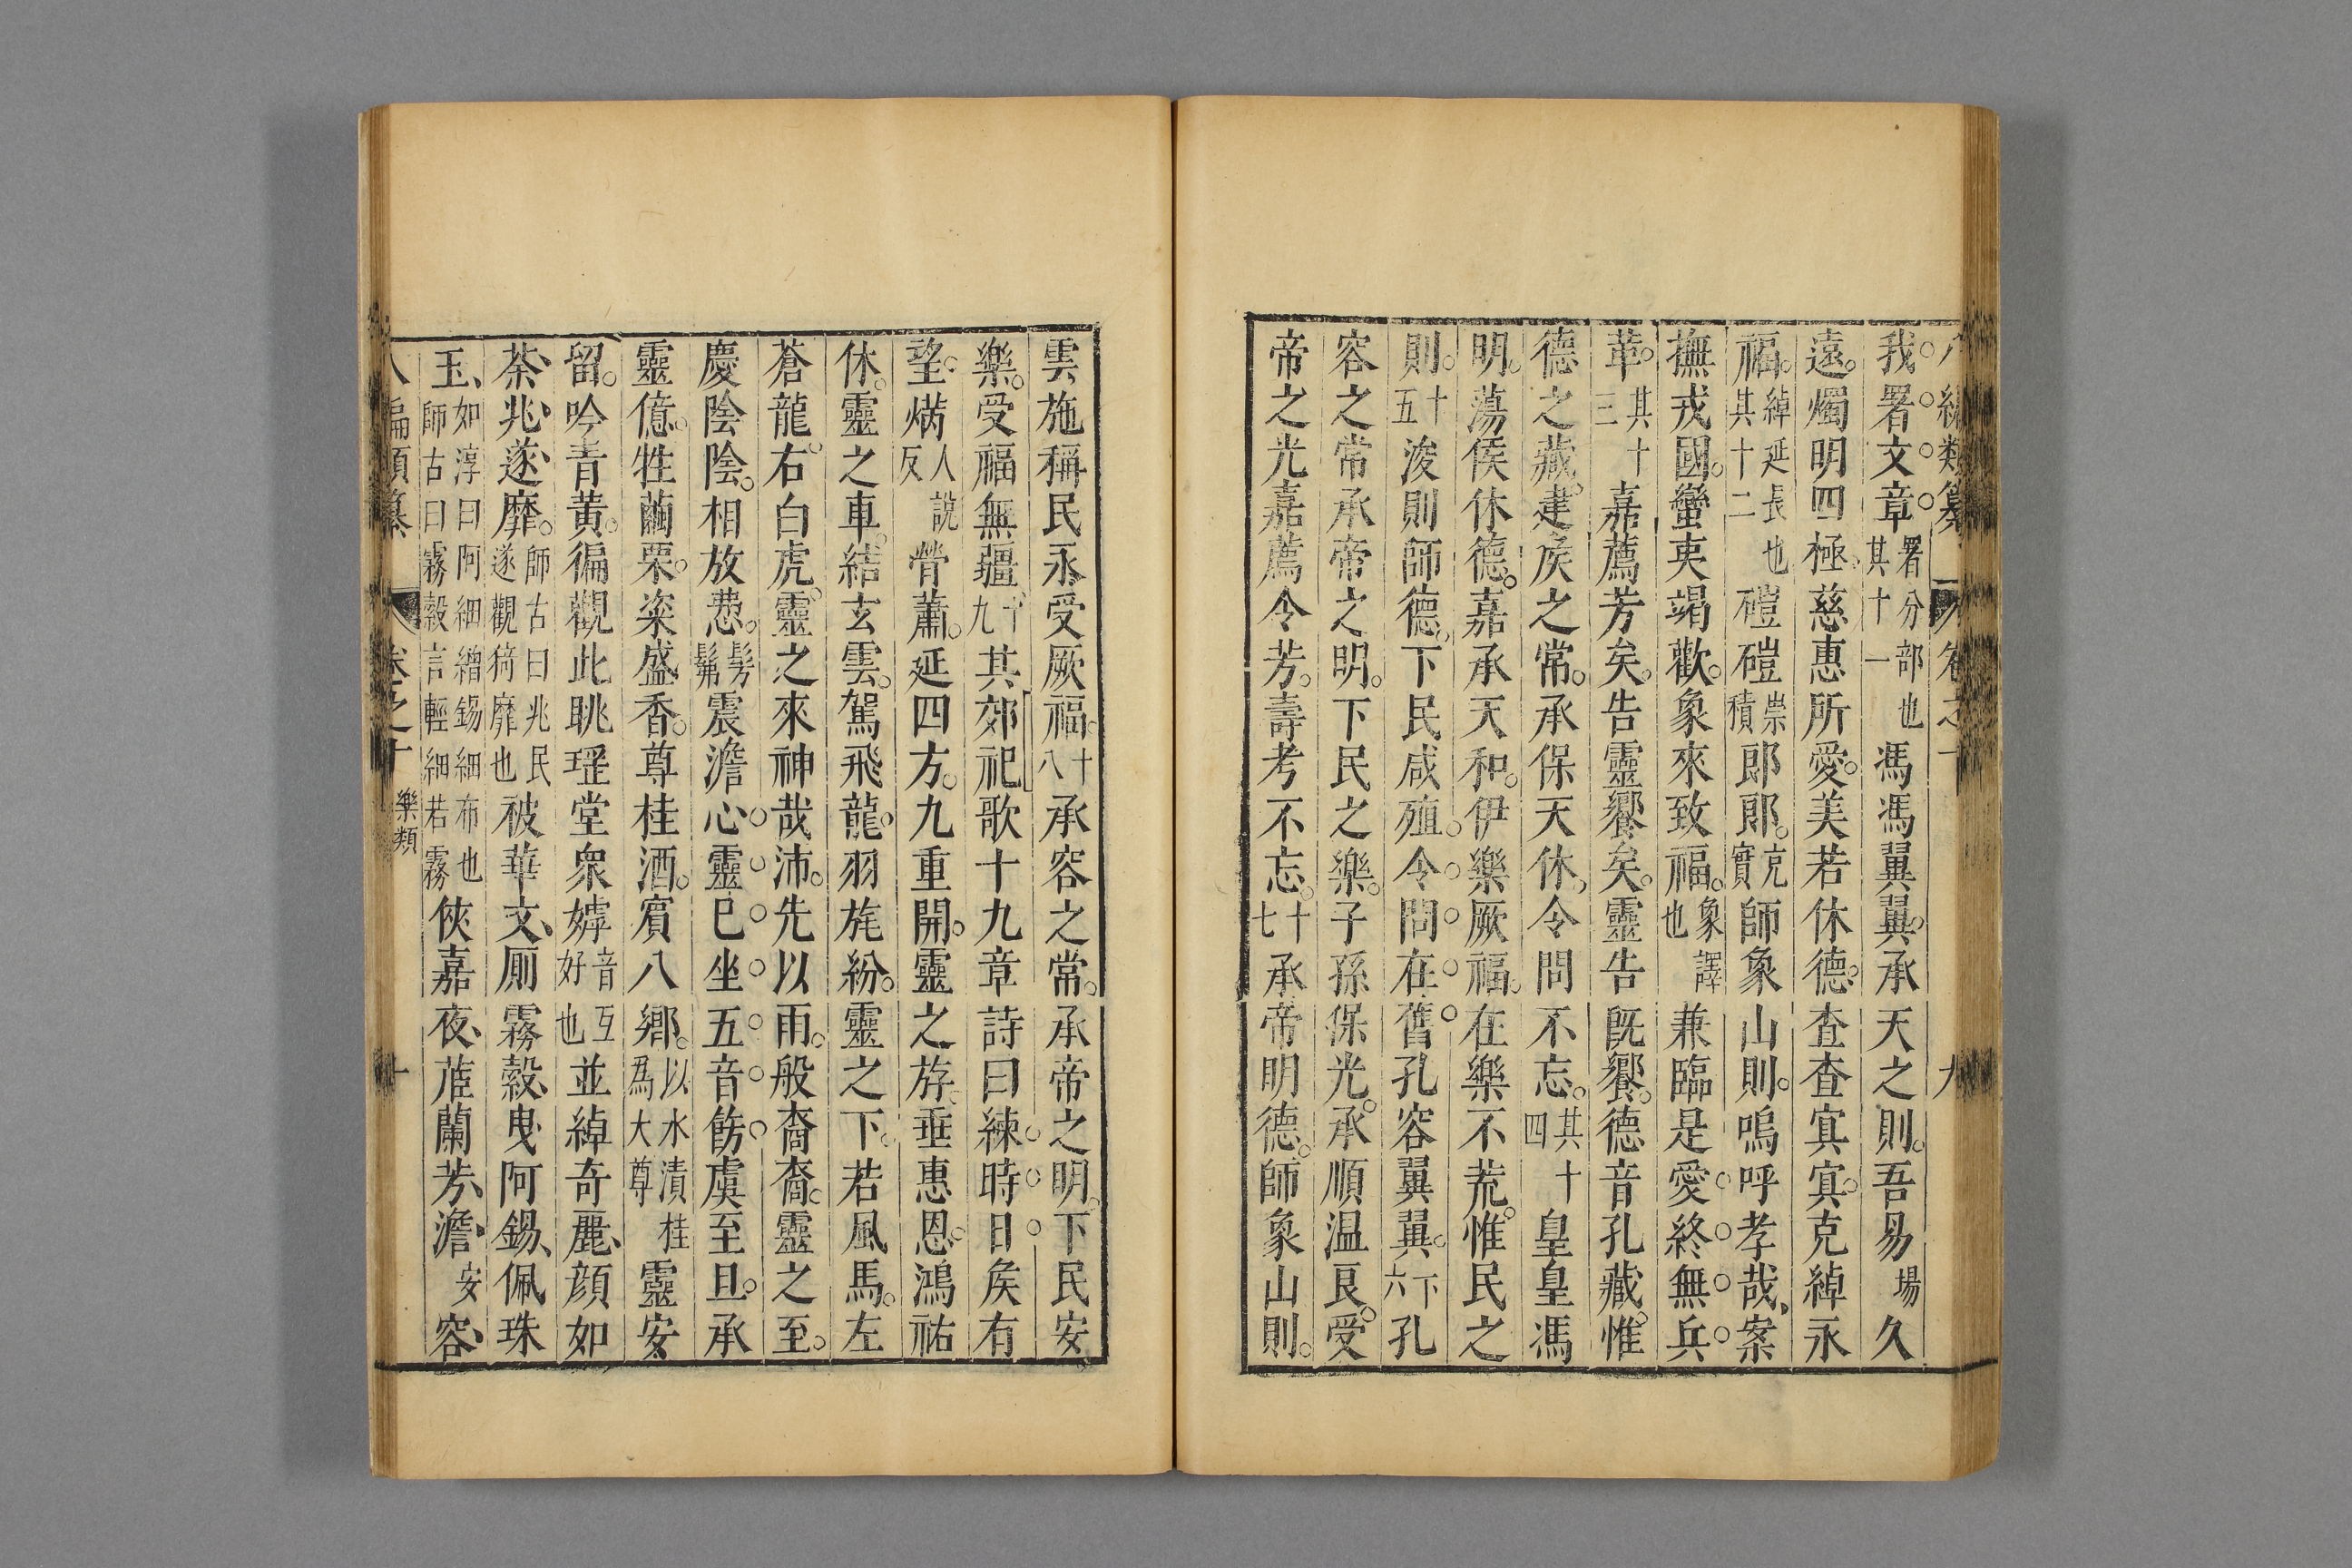 我署文章署分部也其十一馮馮翼翼承天之則吾易場久
遠燭明四極慈惠所愛美若休德查查㝠㝠克綽永
福綽延長也其十二磑磑崇積郎郎克實師象山則嗚呼孝哉案
撫戎國蠻夷竭歡象來致福象譯也兼臨是愛終無兵
革其十三嘉薦芳矣告靈饗矣靈告旣饗德音孔藏惟
德之藏建矦之常承保天休令問不忘其十四皇皇馮
明蕩侯休德嘉承天和伊樂厥福在樂不荒惟民之
則十五浚則師德下民咸殖令問在舊孔容翼翼十六孔
容之常承帝之明下民之樂子孫保光承順温良受
帝之光嘉薦令芳壽考不忘十七承帝明德師象山則
雲施稱民永受厥福十八承容之常承帝之明下民安
樂受福無疆十九其郊祀歌十九章詩曰練時日矦有
望焫人說反膋蕭延四方九重開靈之斿垂惠恩鴻祐
休靈之車結玄雲駕飛龍羽旄紛靈之下若風馬左
蒼龍右白虎靈之來神哉沛先以雨般裔裔靈之至
慶陰陰相放㤥髣髴震澹心靈已坐五音飭虞至旦承
靈億牲繭栗粢盛香尊桂酒賓八鄉以水漬桂爲大尊靈安
留吟青黃徧觀此眺瑶堂衆嫭音互好也並綽奇麗顔如
荼兆逐靡師古曰兆民逐觀猗靡也被華文厠霧縠曳阿錫佩珠
玉如淳曰阿細繒錫細布也師古曰霧縠言輕細若霧俠嘉夜茝蘭芳澹安容
卷之十 樂類 十